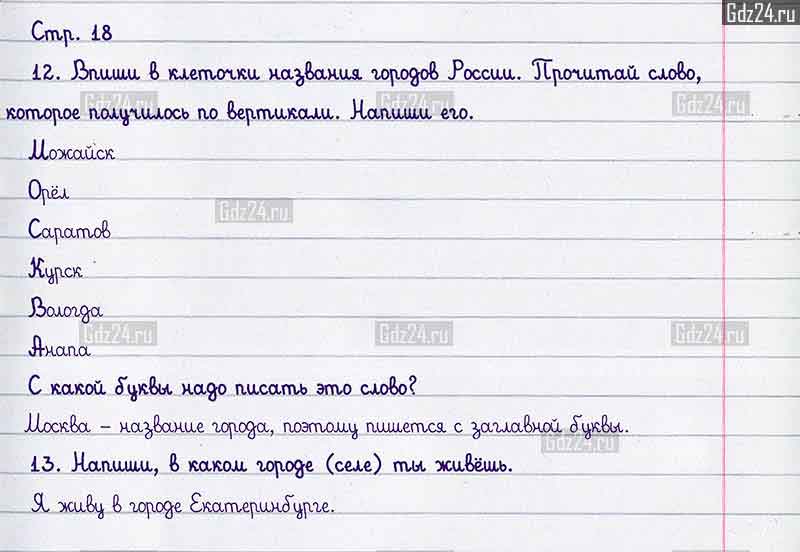 Gdz24.ru
Стр. 18
12. Впиши в клеточки названия городов России. Прочитай слово,
Gdz24.ru Gdz24.ru Gdz24.ru
которое получилось по вертикали. Напиши его.
Можайск
Орёл
Gdz24.ru
Саратов
Курск
Вологда
Gdz24.ru Gdz24.ru Gdz24.ru
Анапа
С какой буквы надо писать это слово?
Москва – название города, поэтому пишется с заглавной буквы.
Gdz24.ru
13. Напиши, в каком городе (селе) ты живёшь.
Я живу в городе Екатеринбурге.